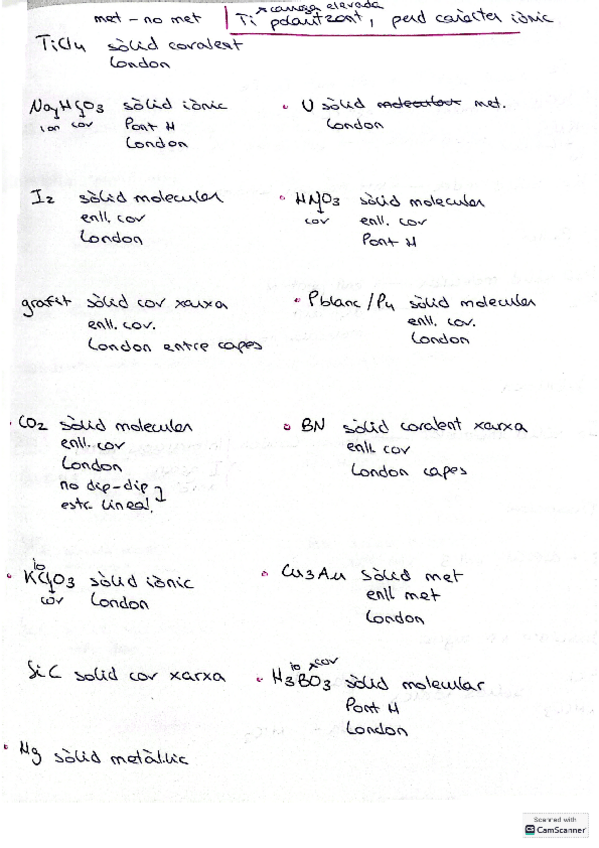 met - no met
× càrrega elevada
Ti polaritzant, perd caràcter iònic
TiCl4 sòlid covalent
London
NaHCO3 sòlid iònic
ion cov Pont H
London
• U sòlid met.
London
I2 sòlid molecular
enll. cov
London
• HNO3 sòlid molecular
cov enll. cov
Pont H
grafit sòlid cov xarxa
enll. cov.
London entre capes
• Pblanc/P4 sòlid molecular
enll. cov.
London
• CO2 sòlid molecular
enll. cov
London
no dip-dip
estr. lineal.
• BN sòlid covalent xarxa
enll cov
London capes
io
• KClO3 sòlid iònic
cov London
• Cu3Au sòlid met
enll met
London
SiC solid cov xarxa
io cov
• H3BO3 sòlid molecular
Pont H
London
• Hg sòlid metàl·lic
Scanned with
CS CamScanner